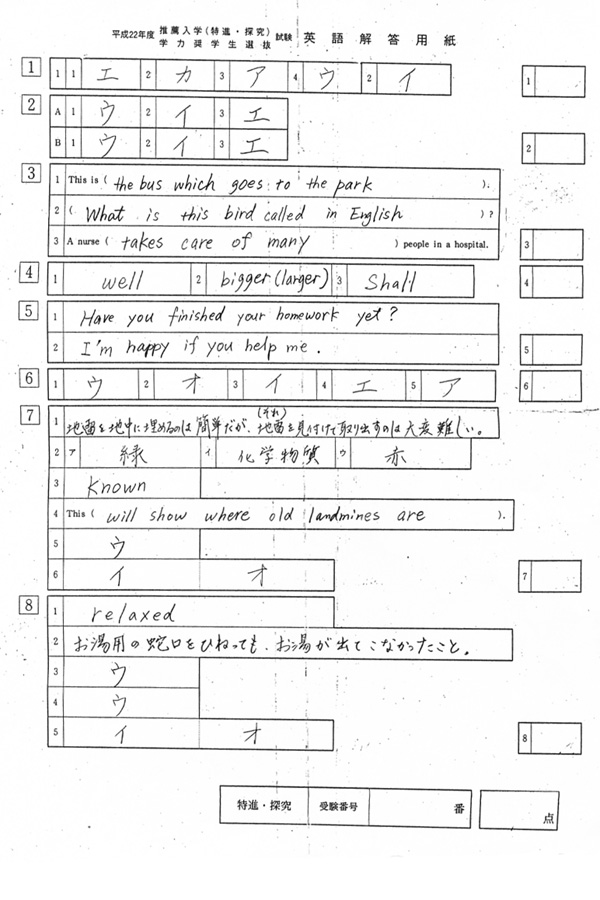 平成22年度 推薦入学(特進・探究) 学力奨学生選抜 試験 英語解答用紙
1 1 1 エ 2 カ 3 ア 4 ウ 2 イ 1
2 A 1 ウ 2 イ 3 エ
B 1 ウ 2 イ 3 エ 2
3 1 This is ( the bus which goes to the park ).
2 ( What is this bird called in English )?
3 A nurse ( takes care of many ) people in a hospital. 3
4 1 well 2 bigger (larger) 3 Shall 4
5 1 Have you finished your homework yet?
2 I'm happy if you help me. 5
6 1 ウ 2 オ 3 イ 4 エ 5 ア 6
7 1 地雷を地中に埋めるのは簡単だが、地雷(それ)を見付けて取り出すのは大変難しい。
2 ア 緑 イ 化学物質 ウ 赤
3 known
4 This ( will show where old landmines are ).
5 ウ
6 イ オ 7
8 1 relaxed
2 お湯用の蛇口をひねっても、お湯が出てこなかったこと。
3 ウ
4 ウ
5 イ オ 8
特進・探究 受験番号 番 点